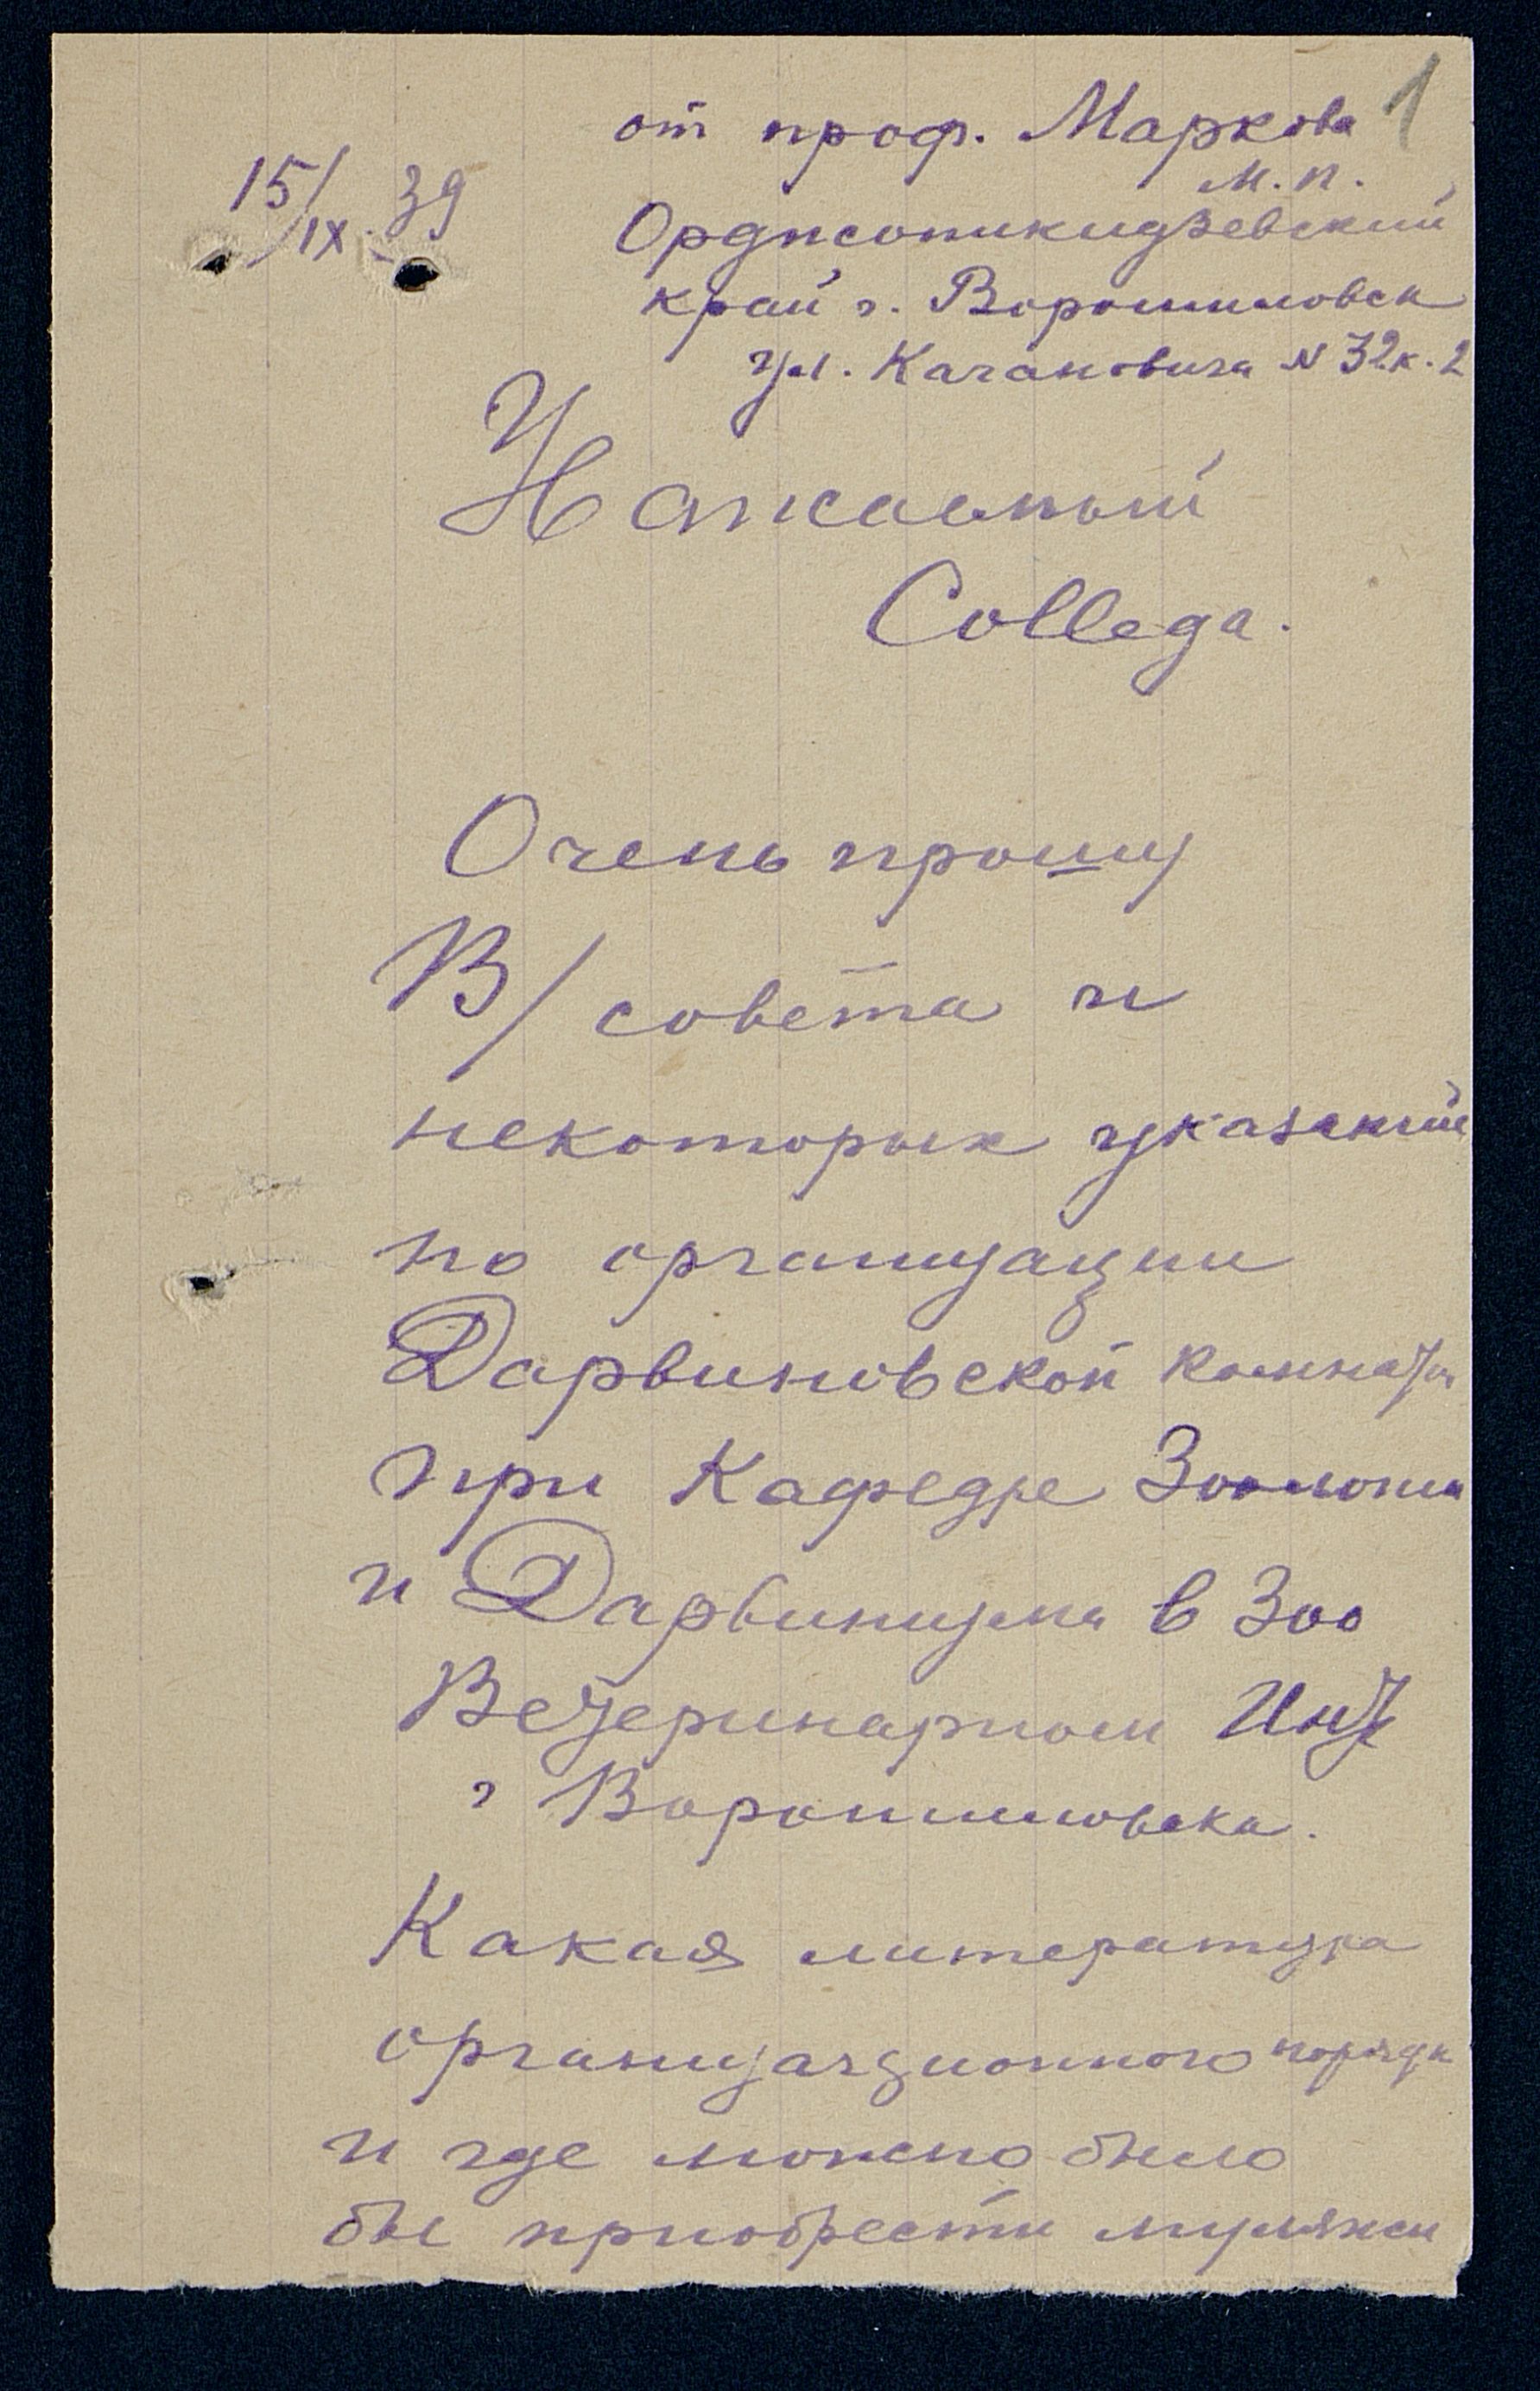 1
от проф. Маркова
М. П.
15/IX. 39
Орджоникидзевский
край г. Ворошиловск
ул. Кагановича N 32 к. 2
Уважаемый
Collega.
Очень прошу
В/ совета и
некоторых указаний
по организации
Дарвиновской комнаты
при Кафедре Зоологии
и Дарвинизма в Зоо
Ветеринарном Инт
г Ворошиловска.
Какая литература
организационного порядк
и где можно было
бы приобрести муляжи